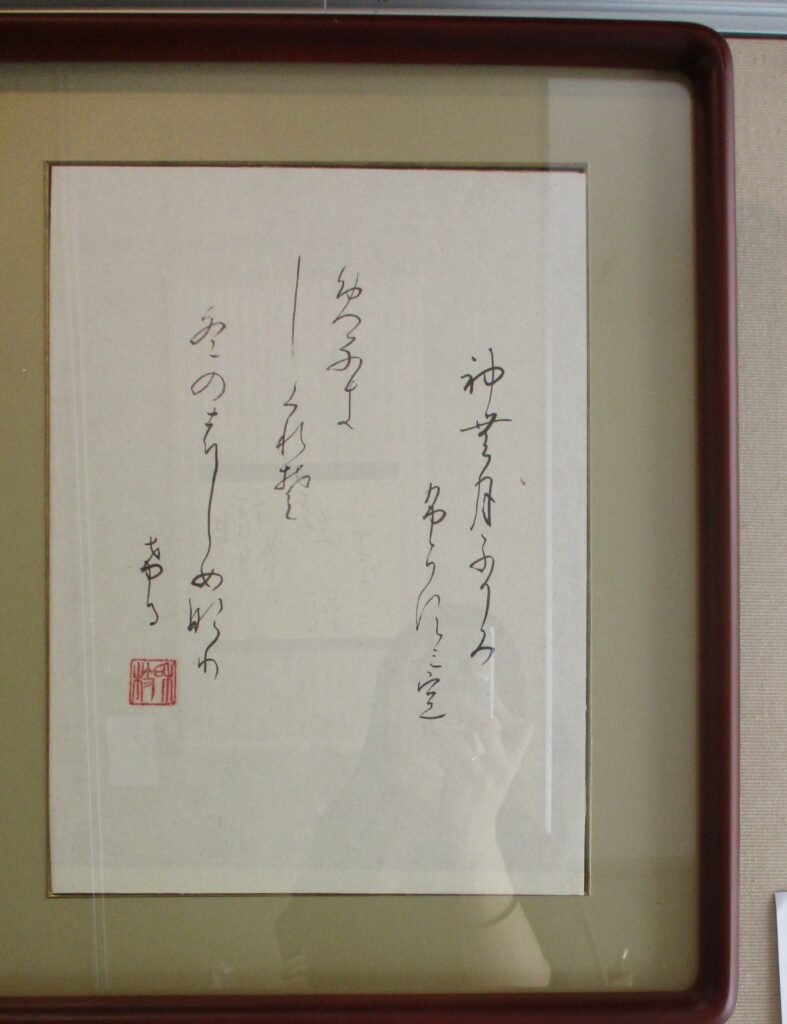 神無月ふりみ
ふらすみ定
めなき
しくれそ
冬のはしめなり
ける